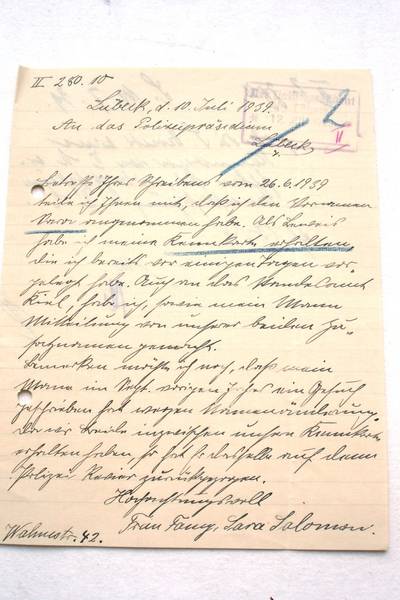 II 280.10
Lübeck, d. 10. Juli 1939.
An das Polizeipräsidium
Lübeck
Betrifft Ihres Schreibens vom 26.6.1939
teile ich Ihnen mit, daß ich den Vornamen
Sara angenommen habe. Als Beweis
habe ich meine Kennkarte erhalten,
die ich bereits vor einigen Tagen vor-
gelegt habe. Auch an das Standesamt
Kiel, habe ich, sowie mein Mann
Mitteilung von unseren beiden Zu-
satznamen gemacht.
Bemerken möchte ich noch, daß mein
Mann im Sept. vorigen Jahres ein Gesuch
geschrieben hat wegen Namenänderung.
Da wir beide inzwischen unsere Kennkarte
erhalten haben, hat dasselbe auf dem
Polizei Revier zurückgezogen.
Hochachtungsvoll
Frau Fanny Sara Salomon.
Wahmstr. 42.